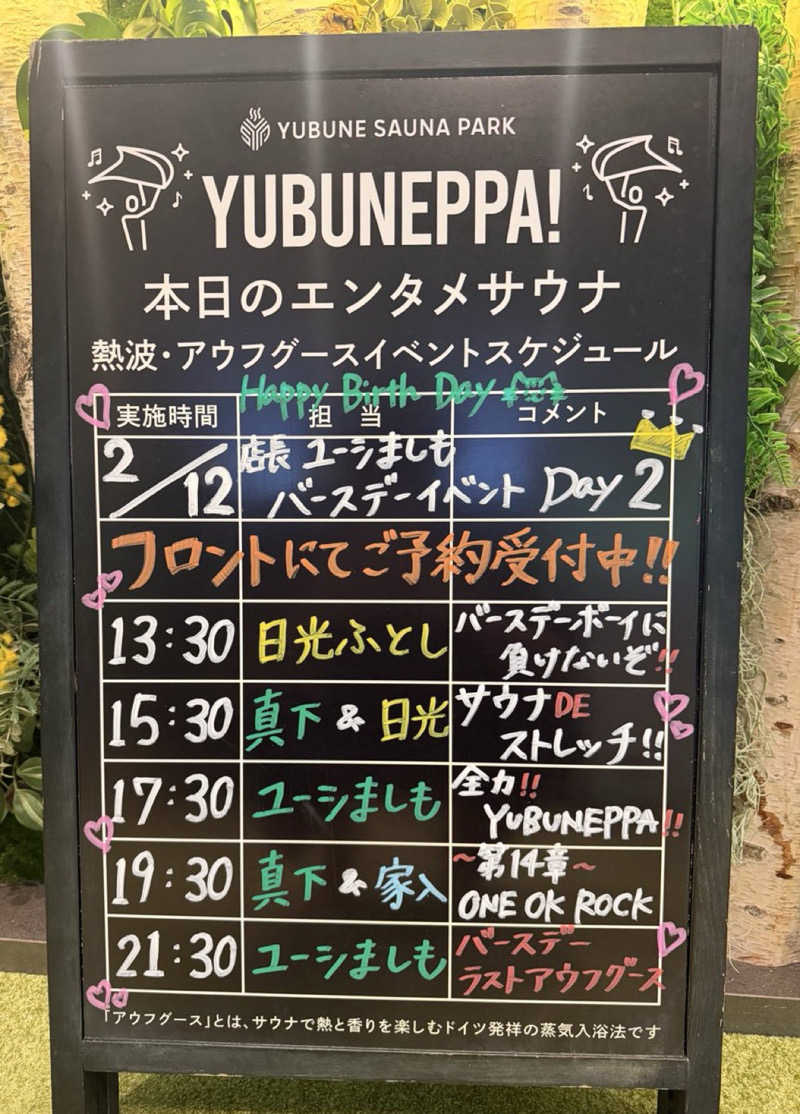 YUBUNE SAUNA PARK
YUBUNEPPA!
本日のエンタメサウナ
熱波・アウフグースイベントスケジュール
Happy Birth Day
実施時間 担当 コメント
2/12 店長 ユーシましも
バースデーイベント Day 2
フロントにてご予約受付中!!
13:30 日光ふとし バースデーボーイに
負けないぞ!!
15:30 真下 & 日光 サウナDE
ストレッチ!!
17:30 ユーシましも 全力!!
YUBUNEPPA!!
19:30 真下 & 家入 ~第14章~
ONE OK ROCK
21:30 ユーシましも バースデー
ラストアウフグース
「アウフグース」とは、サウナで熱と香りを楽しむドイツ発祥の蒸気入浴法です